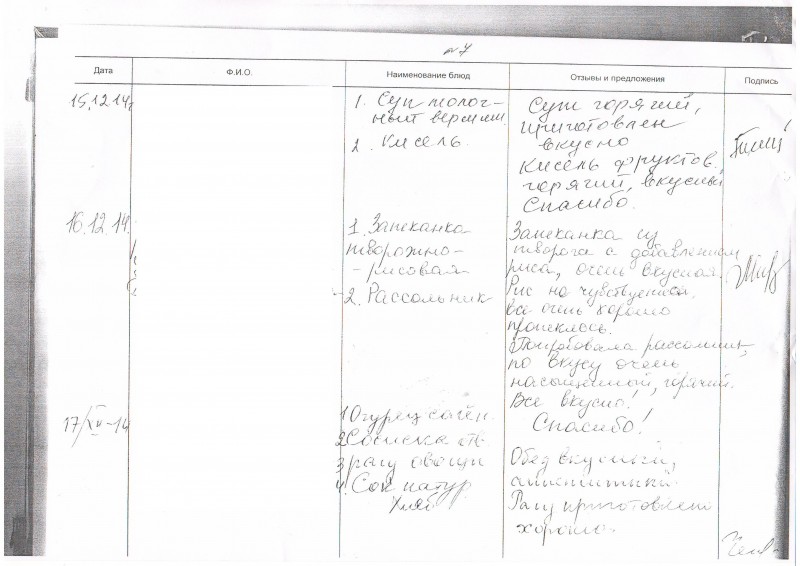 № 7
Дата Ф.И.О. Наименование блюд Отзывы и предложения Подпись
15.12.14г.
1. Суп молоч-
ный вермиш.
2. Кисель.
Суп горячий,
приготовлен
вкусно
Кисель фруктов.
горячий, вкусный
Спасибо.
16.12.14.
1. Запеканка
творожно-
-рисовая
-2. Рассольник
Запеканка из
творога с добавлением
риса, очень вкусная.
Рис не чувствуется.
все очень хорошо
пропеклось.
Попробовала рассольник,
по вкусу очень
насыщенной, горячий.
Все вкусно!
Спасибо!
17/XII-14
1 Огурец солён.
2 Сосиска отв
3 рагу овощн
4. Сок натур
Хлеб
Обед вкусный,
аппетитный.
Рагу приготовлено
хорошо.